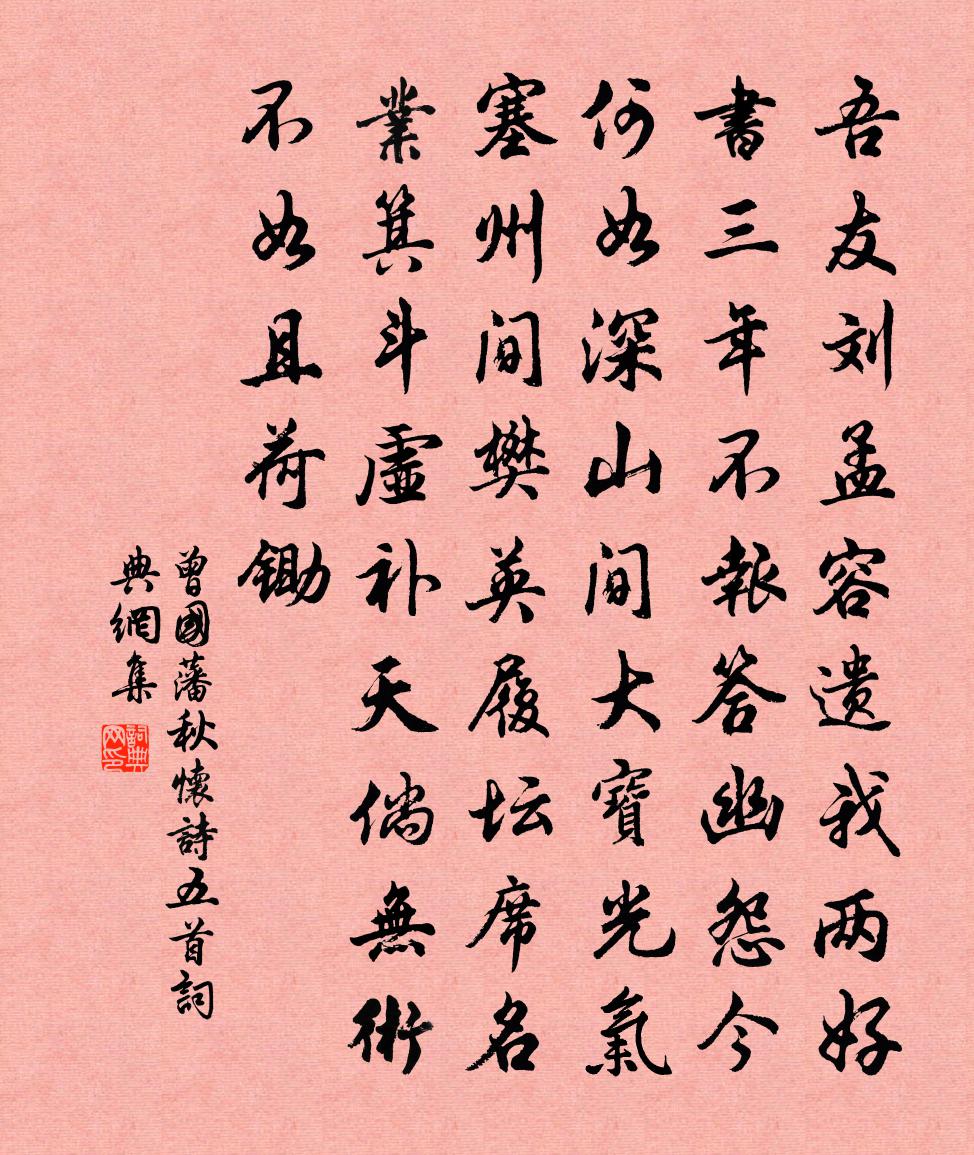 吾友刘孟容遗我两好
書三年不報答幽怨今
何如深山间大寶光氣
塞州间樊英履坛席名
業箕斗虚补天倘無術
不如且荷锄
曾國藩秋懷詩五首詞
典網集
詞典网印